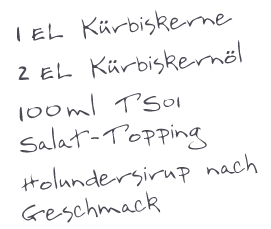 1 EL Kürbiskerne
2 EL Kürbiskernöl
100ml TSOI
Salat-Topping
Holundersirup nach
Geschmack